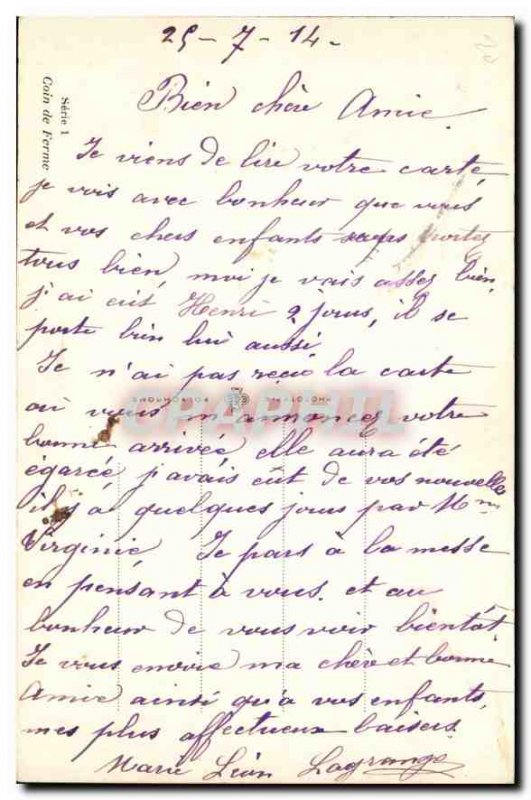 25-7-14-
Bien chère Amie.
Je viens de lire votre carte,
je vois avec bonheur que vous
et vos chers enfants vous portez
tous bien, moi je vais assez bien,
j'ai eut Henri 2 jours, il se
porte bien lui aussi
Je n'ai pas reçu la carte
où vous m'annoncez votre
bonne arrivée elle aura été
égarée, j'avais eût de vos nouvelles
il y à quelques jours par Mme
Virginie. Je pars à la messe
en pensant à vous. et au
bonheur de vous voir bientôt
Je vous envoie ma chère et bonne
Amie ainsi qu'à vos enfants,
mes plus affectueux baisers.
Marie Léon Lagrange
Série 1
Coin de Ferme
CPAPHIL